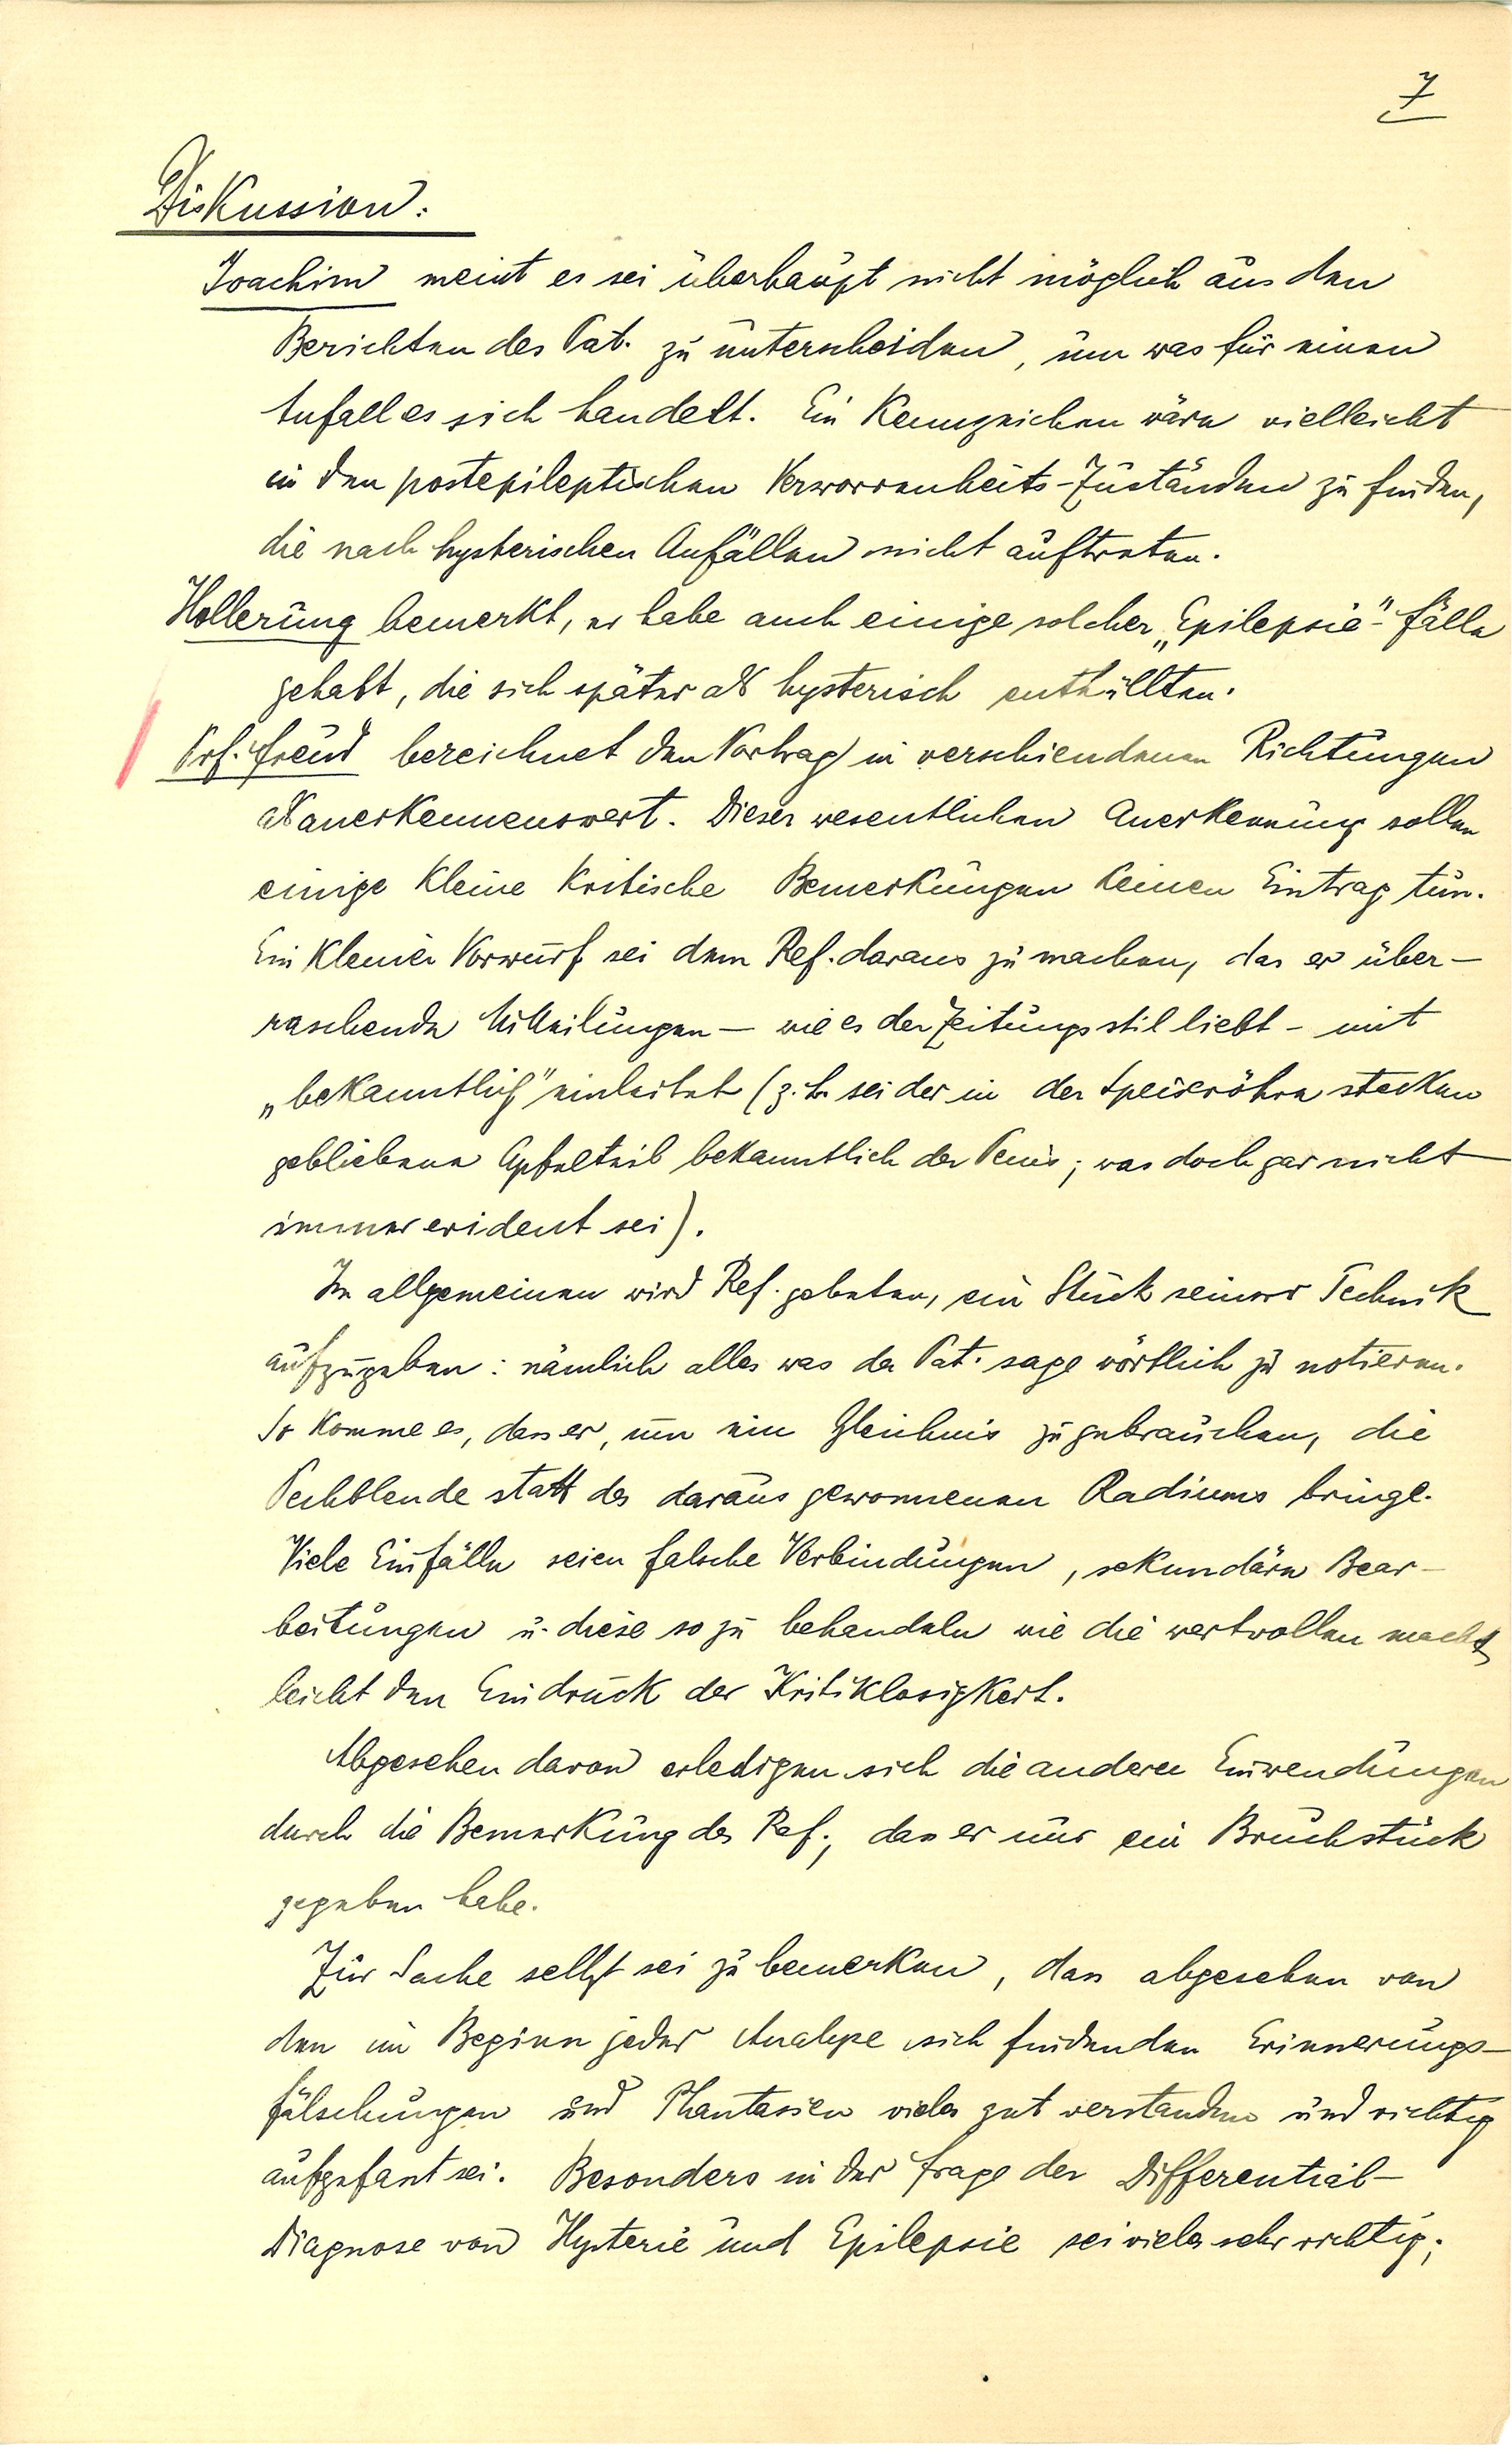 7
Diskussion:
Joachim meint es sei überhaupt nicht möglich aus den
Berichten des Pat. zu unterscheiden, um was für einen
Anfall es sich handelt. Ein Kennzeichen wäre vielleicht
in den postepileptischen Verworrenheits-Zuständen zu finden,
die nach hysterischen Anfällen nicht auftreten.
Hollerung bemerkt, er habe auch einige solcher „Epilepsie"-fälle
gehabt, die sich später als hysterisch enthüllten.
Prf. Freud bezeichnet den Vortrag in verschiendenen Richtungen
als anerkennenswert. Dieser wesentlichen Anerkennung sollen
einige kleine kritische Bemerkungen keinen Eintrag tun.
Ein kleiner Vorwurf sei dem Ref. daraus zu machen, das er über-
raschende Mitteilungen – wie es der Zeitungsstil liebt – mit
„bekanntlich" einleitet (z. b. sei der in der Speiseröhre stecken
gebliebene Apfelteil bekanntlich der Penis; was doch gar nicht
immer evident sei).
Im allgemeinen wird Ref. gebeten, ein Stück seiner Technik
aufzugeben: nämlich alles was der Pat. sage wörtlich zu notieren.
So komme es, dass er, um ein Gleichnis zu gebrauchen, die
Pechblende statt des daraus gewonnenen Radiums bringe.
Viele Einfälle seien falsche Verbindungen, sekundäre Bear-
beitungen u. diese so zu behandeln wie die wertvollen macht
leicht den Eindruck der Kritiklosigkeit.
Abgesehen davon erledigen sich die anderen Einwendungen
durch die Bemerkung des Ref., dass er nur ein Bruchstück
gegeben habe.
Zur Sache selbst sei zu bemerken, dass abgesehen von
den im Beginn jeder Analyse sich findenden Erinnerungs-
fälschungen und Phantasien vieles gut verstanden und richtig
aufgefasst sei. Besonders in der Frage der Differential-
Diagnose von Hysterie und Epilepsie sei vieles sehr richtig;